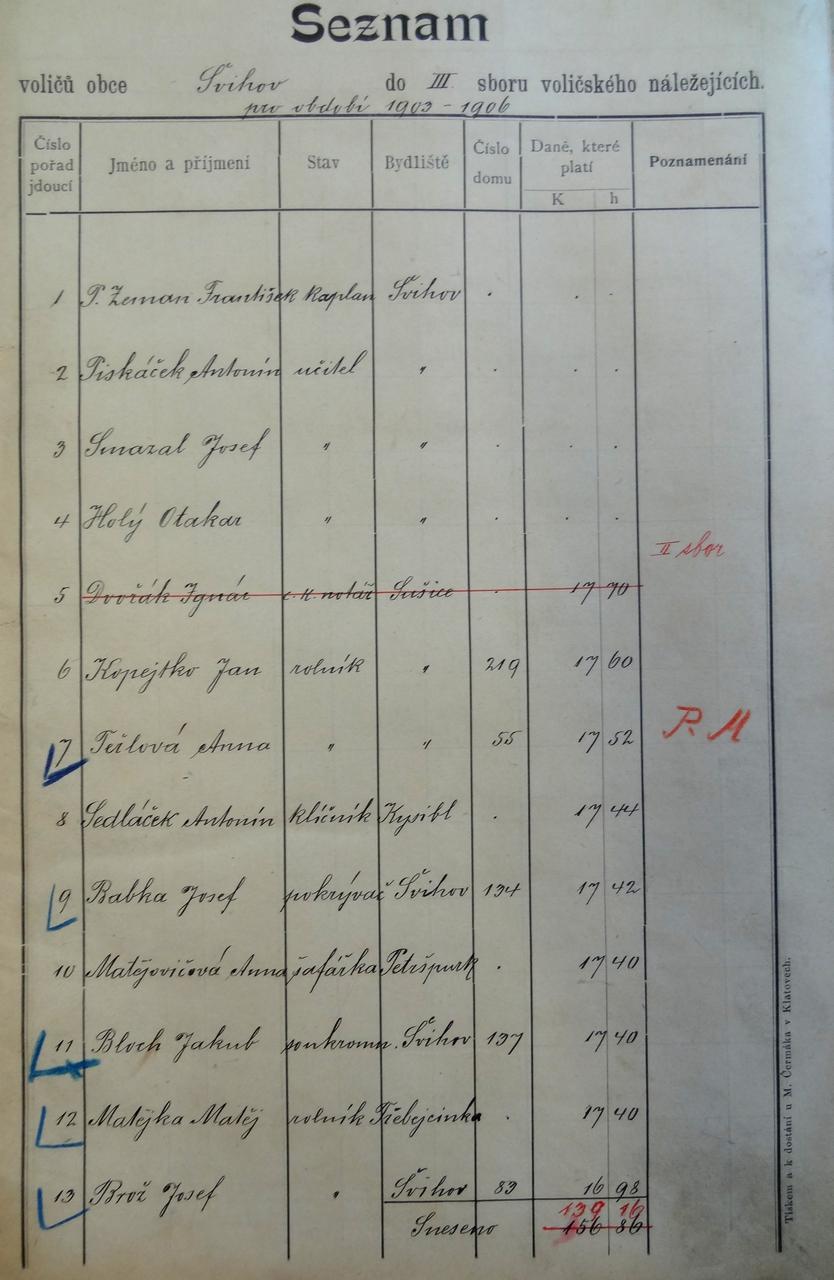 Seznam
voličů obce Švihov do III sboru voličského náležejících.
pro období 1903 - 1906
Číslo pořad jdoucí Jméno a příjmení Stav Bydliště Číslo domu Daně, které platí K h Poznamenání
1 P. Zeman František kaplan Švihov . . .
2 Piskáček Antonín učitel " . . .
3 Smazal Josef " " . . .
4 Holý Otakar " " . . .
II sbor
5 Dvořák Ignác c. k. notář Sušice . 17 70
6 Kopejtko Jan rolník " 219 17 60
7 Teřlová Anna " " 55 17 52 P. M
8 Sedláček Antonín klíčník Kysibl . 17 44
9 Babka Josef pokrývač Švihov 134 17 42
10 Matějovičová Anna šafářka Petršpurk . 17 40
11 Bloch Jakub soukromn. Švihov 137 17 40
12 Matějka Matěj rolník Třebejcinka . 17 40
13 Brož Josef " Švihov 83 16 98
139 16
Sneseno 156 86
Tiskem a k dostání u M. Čermáka v Klatovech.